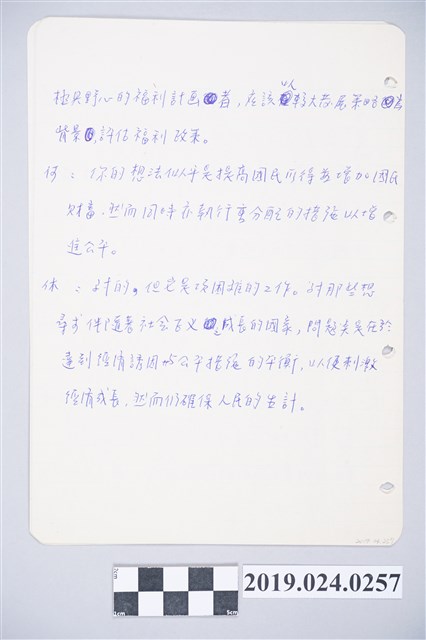 極具野心的福利計畫者，在該以較大發展策略為
背景，評估福利政策。
何：你的想法似乎是提高國民所得並增加國民
財富．然而同時亦執行重分配的措施以增
進公平。
休：對的，但它是項困難的工作。對那些想
尋求伴隨著社會正義之成長的國家，問題其實在於
達到經濟誘因與公平措施的平衡，以便刺激
經濟成長．然而仍確保人民的生計。
2cm
1cm
5cm
2019.024.0257